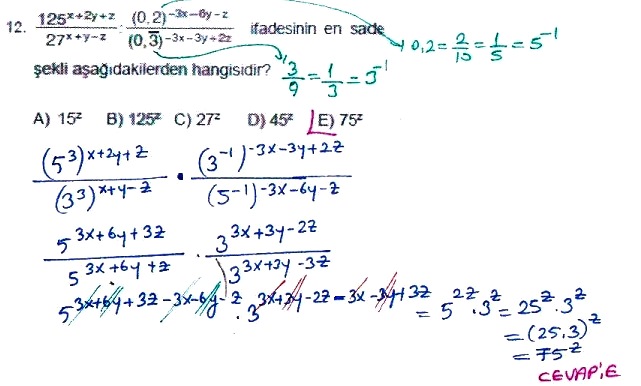 12. 125^(x+2y+z) / 27^(x+y-z) : (0,2)^(-3x-6y-z) / (0,3̅)^(-3x-3y+2z) ifadesinin en sade
0,2 = 2/10 = 1/5 = 5^-1
şekli aşağıdakilerden hangisidir? 3/9 = 1/3 = 3^-1
A) 15^z B) 125^z C) 27^z D) 45^z E) 75^z
(5^3)^(x+2y+z) / (3^3)^(x+y-z) · (3^-1)^(-3x-3y+2z) / (5^-1)^(-3x-6y-z)
5^(3x+6y+3z) / 5^(3x+6y+z) · 3^(3x+3y-2z) / 3^(3x+3y-3z)
5^(3x+6y+3z-3x-6y-z) · 3^(3x+3y-2z-3x-3y+3z) = 5^(2z) · 3^z = 25^z · 3^z
= (25.3)^z
= 75^z
CEVAP:E